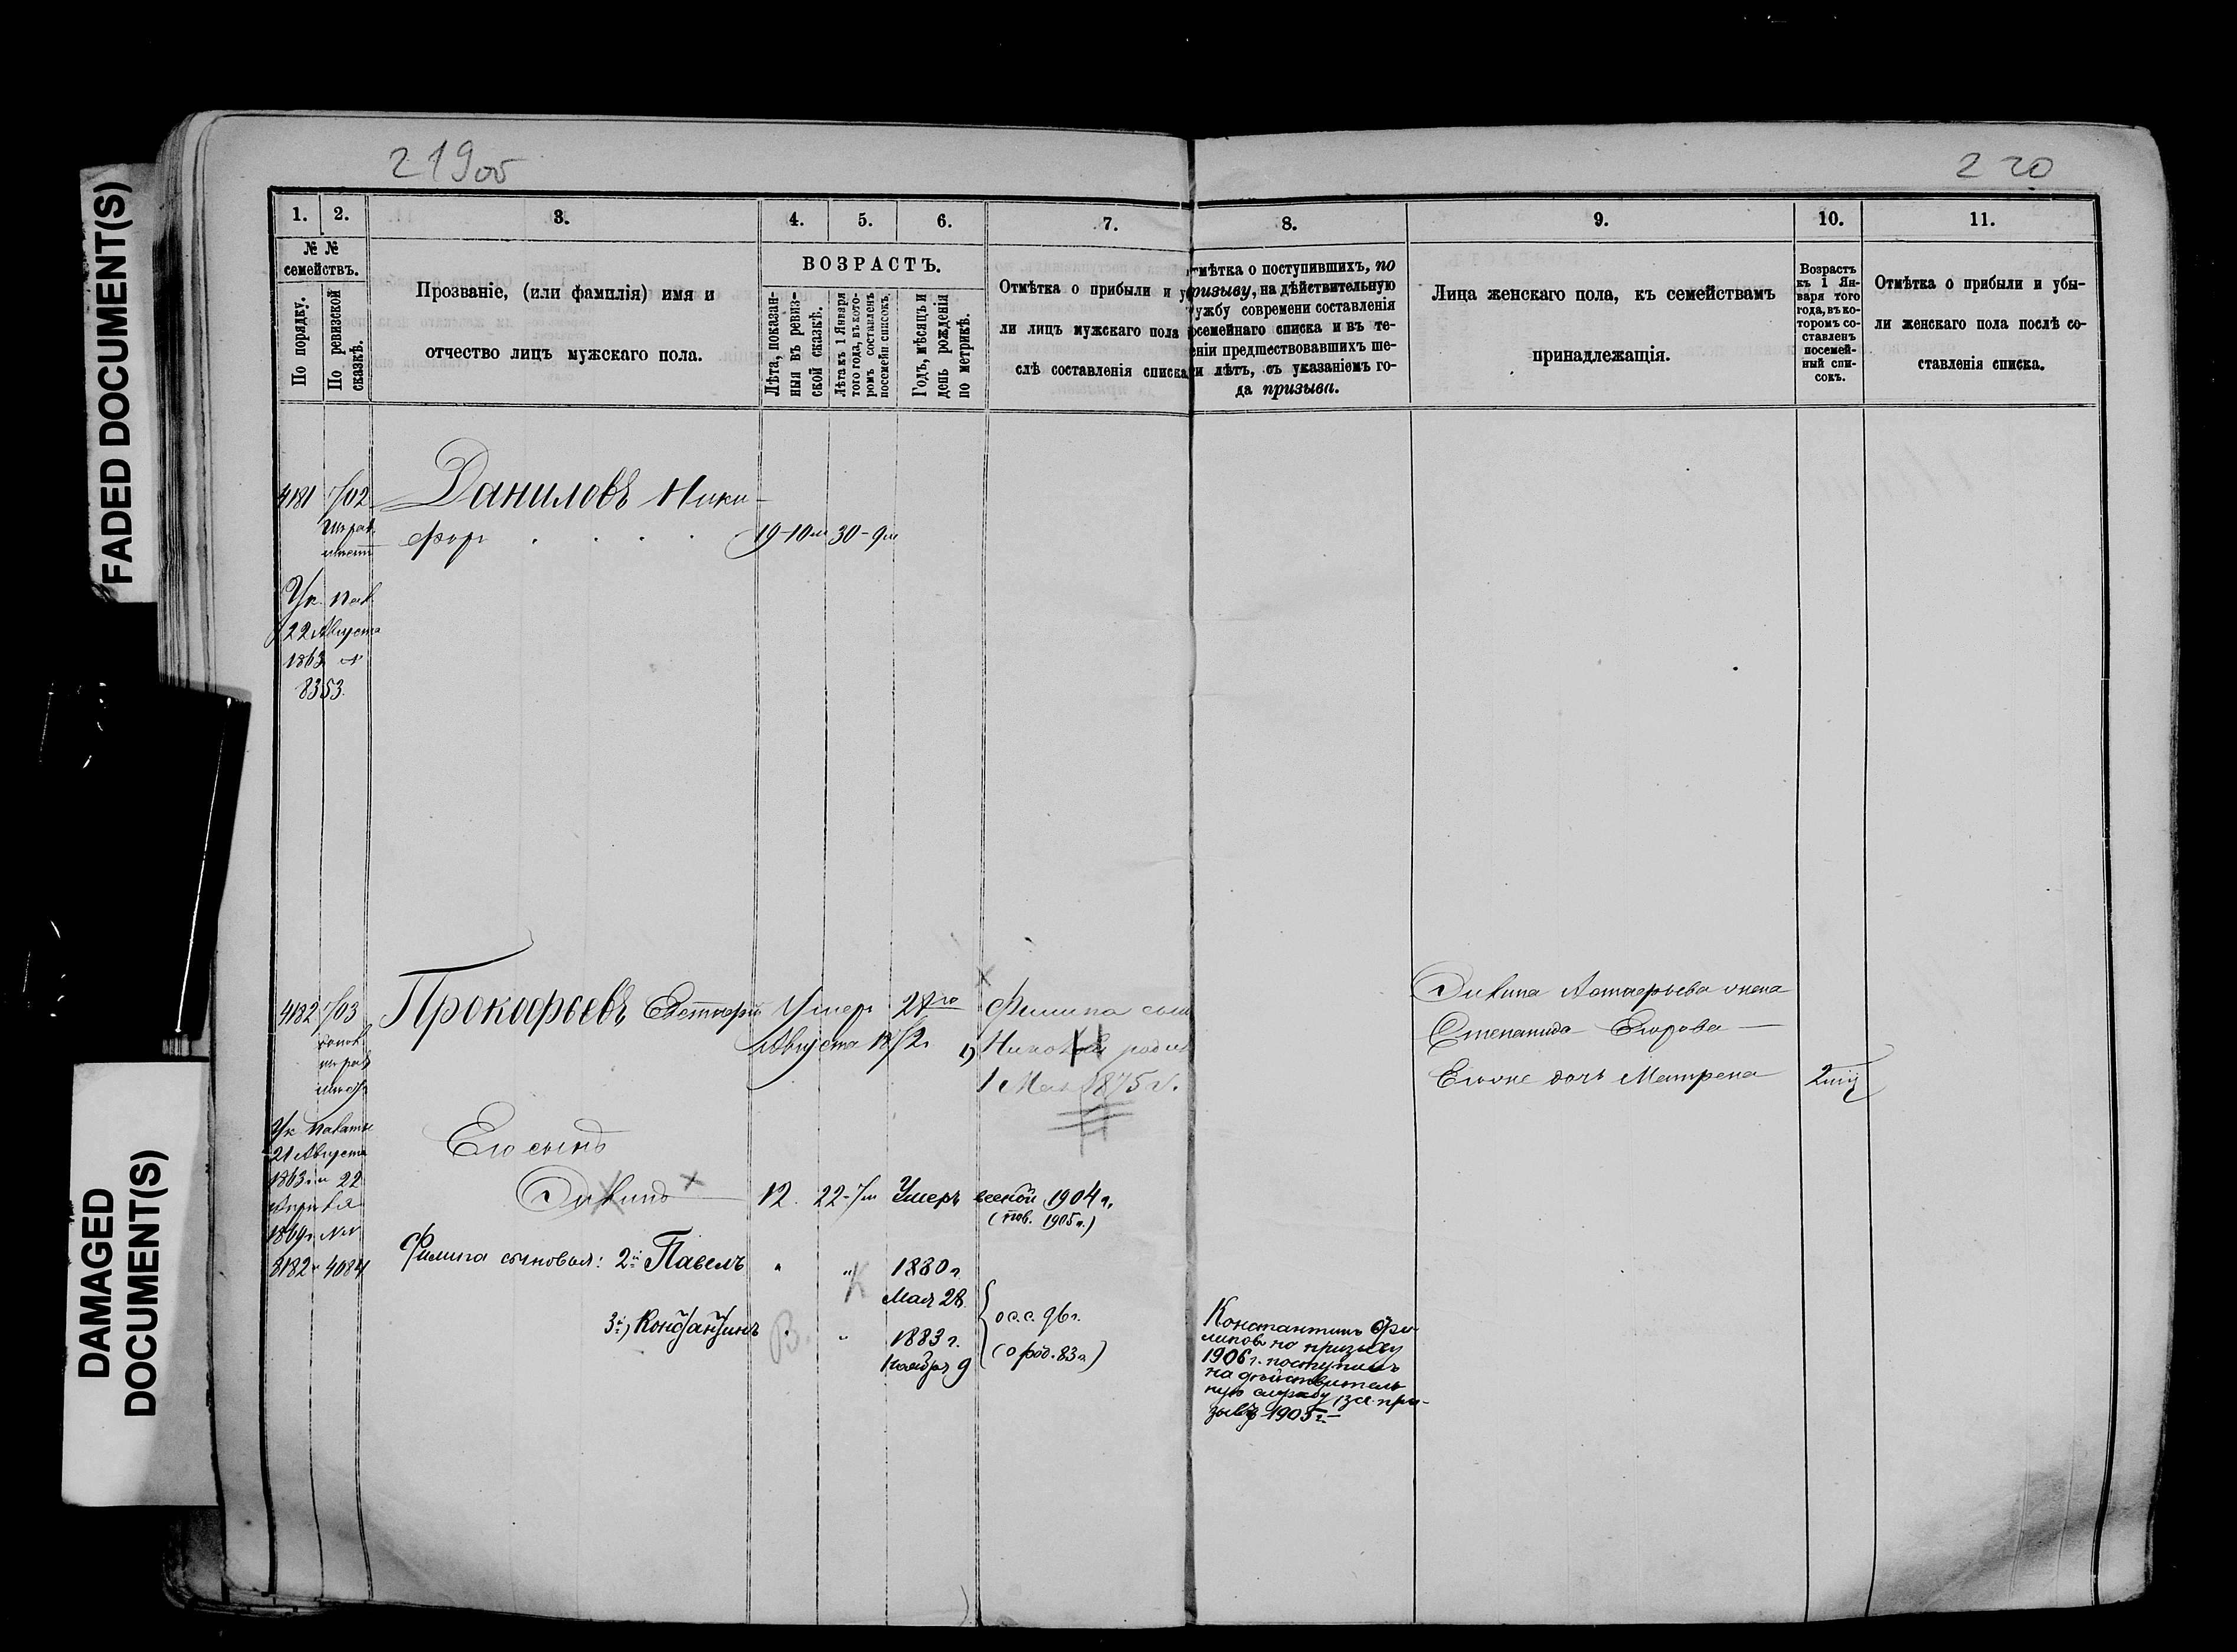 FADED DOCUMENT(S)
DAMAGED
DOCUMENT(S)
219об
220
1.
2.
3.
4.
5.
6.
7.
8.
9.
10.
11.
№ №
семействъ.
По порядку.
По ревизской
сказкѣ.
Прозваніе, (или фамилія) имя и
отчество лицъ мужскаго пола.
ВОЗРАСТЪ.
Лѣта, показан-
ныя въ ревиз-
ской сказкѣ.
Лѣта къ 1 Января
того года, въ кото-
ромъ составленъ
посемейн списокъ.
Годъ, мѣсяцъ и
день рожденія
по метрикѣ.
Отмѣтка о прибыли и у
ли лицъ мужскаго пола
слѣ составленія списка
мѣтка о поступившихъ, по
ризыву, на дѣйствительную
ужбу современи составленія
осемейнаго списка и въ те-
еніи предшествовавшихъ ше-
и лѣтъ, съ указаніемъ го-
да призыва.
Лица женскаго пола, къ семействамъ
принадлежащія.
Возрастъ
къ 1 Ян-
варя того
года, въ ко-
торомъ со-
ставленъ
посемей-
ный спи-
сокъ.
Отмѣтка о прибыли и убы-
ли женскаго пола послѣ со-
ставленія списка.
4181
Даниловъ Ники-
форъ . . . . 19-10м 30-9м
Ук. Пал.
22 Августа
1863 №
8353.
4182
Прокофьевъ Евстафій Умеръ 28го
Августа 1872г
Филипа сын
1) Николай родил
1 Мая 1875 г.
Степанида Егорова
Егоже дочь Матрена
Ук. Палаты
21 Августа
1863г и 22
Апрѣля
1869г №№
8182 и 4084
Его сынъ
12. 22-7м Умеръ весной 1904 г.
(пов. 1905 г.)
Филипа сыновья: 2й Павелъ " " 1880 г.
Мая 28.
3й) Константинъ " " 1883 г.
Ноября 9
К
В.
о с.с. 96 г.
(о рód. 83 г.)
Константинъ Фи-
липовъ по призыву
1906 г. поступилъ
на дѣйствитель
ную службу за при-
зывъ 1905 г.—